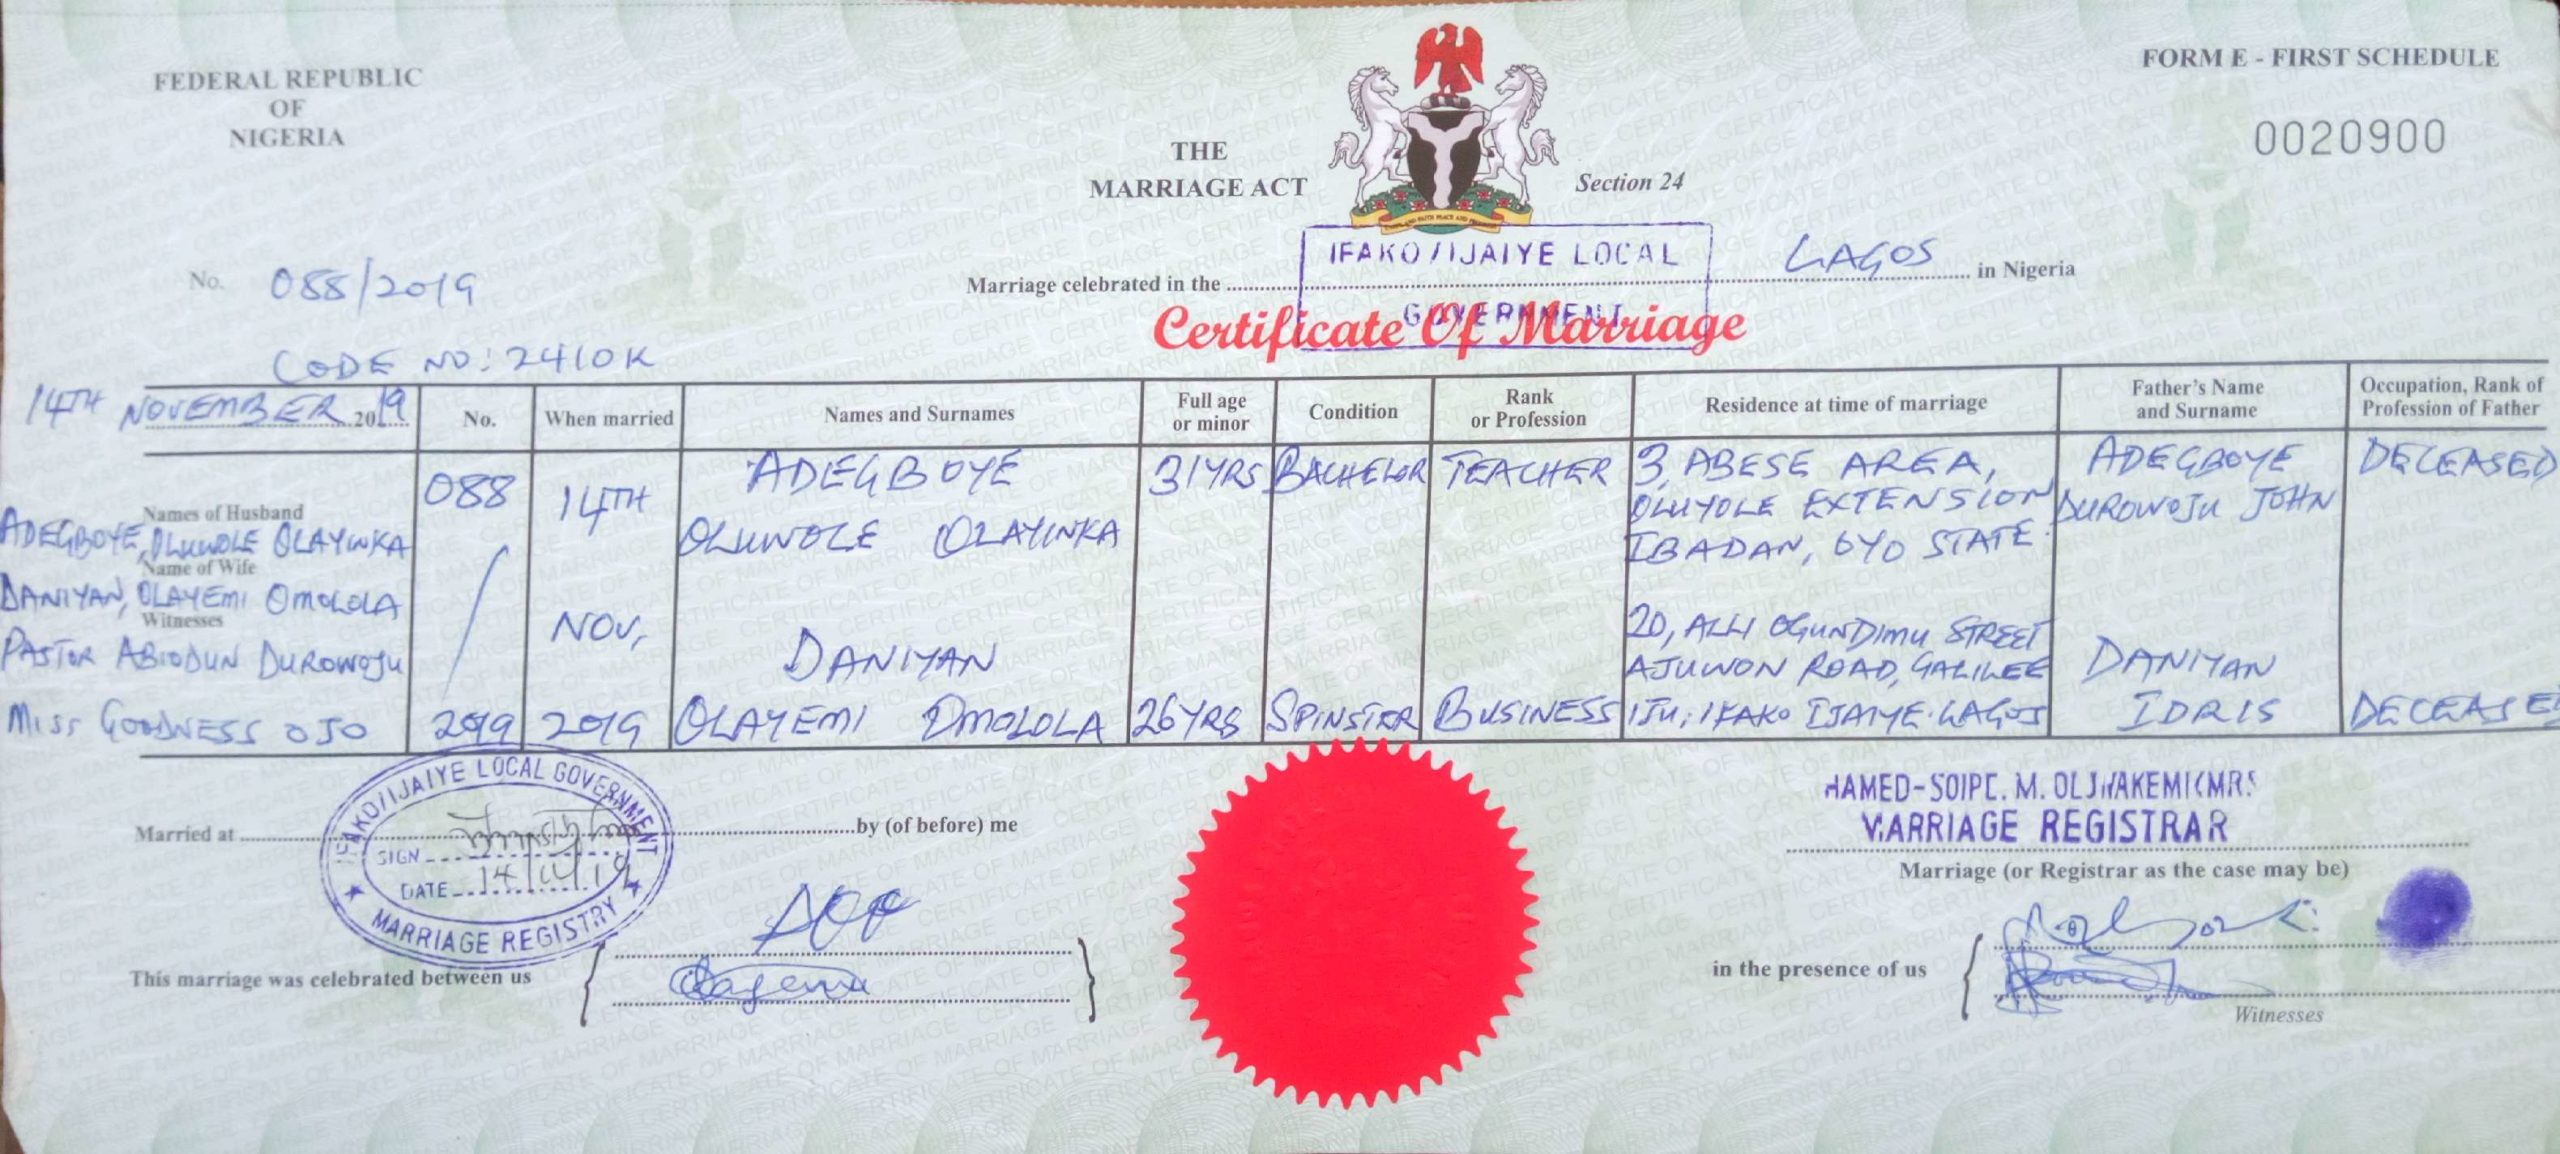 FEDERAL REPUBLIC
OF
NIGERIA
FORM E - FIRST SCHEDULE
0020900
THE
MARRIAGE ACT
Section 24
No. 088/2019
IFAKO/IJAIYE LOCAL
GOVERNMENT
Marriage celebrated in the LAGOS in Nigeria
Certificate Of Marriage
CODE NO: 2410K
14TH NOVEMBER 2019
No.
When married
Names and Surnames
Full age
or minor
Condition
Rank
or Profession
Residence at time of marriage
Father's Name
and Surname
Occupation, Rank of
Profession of Father
Names of Husband
ADEGBOYE, OLUWOLE OLAYINKA
Name of Wife
DANIYAN, OLAYEMI OMOLOLA
Witnesses
PASTOR ABIODUN DUROWOJU
MISS GOODNESS OJO
088
/
2019
14TH
NOV,
2019
ADEGBOYE
OLUWOLE OLAYINKA
31YRS
BACHELOR
TEACHER
3, ABESE AREA,
OLUYOLE EXTENSION
IBADAN, OYO STATE.
ADEGBOYE
DUROWOJU JOHN
DECEASED
DANIYAN
OLAYEMI OMOLOLA
26YRS
SPINSTER
BUSINESS
20, ALLI OGUNDIMU STREET
AJUWON ROAD, GALILEE
IJU, IFAKO IJAIYE. LAGOS
DANIYAN
IDRIS
DECEASED
IFAKO/IJAIYE LOCAL GOVERNMENT
SIGN
DATE 14/11/19
MARRIAGE REGISTRY
Married at by (of before) me
M. OLUWAKEMI (MRS
MARRIAGE REGISTRAR
Marriage (or Registrar as the case may be)
This marriage was celebrated between us
in the presence of us
Witnesses